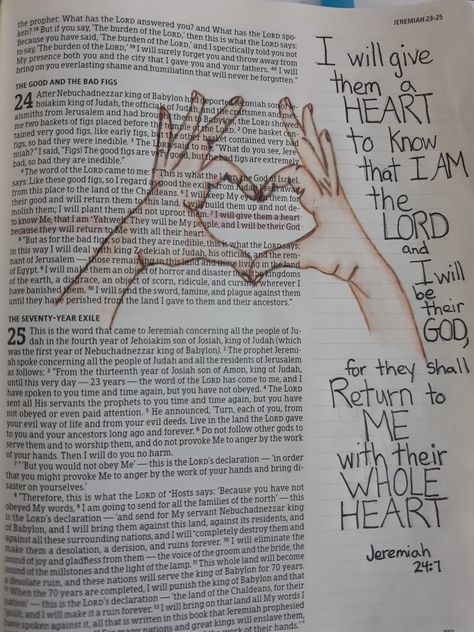 the prophet: What has the LORD answered you? and What has the LORD spo-
ken? 38 But if you say, 'The burden of the LORD,' then this is what the LORD says:
Because you have said, 'The burden of the LORD,' and I specifically told you not
to say, 'The burden of the LORD,' 39 I will surely forget you and throw away from
My presence both you and the city that I gave you and your fathers. 40 I will
bring on you everlasting shame and humiliation that will never be forgotten."
THE GOOD AND THE BAD FIGS
24 After Nebuchadnezzar king of Babylon had deported Jeconiah son of Je-
hoiakim king of Judah, the officials of Judah, and the craftsmen and
smiths from Jerusalem and had brought them to Babylon, the LORD showed
me two baskets of figs placed before the temple of the LORD. 2 One basket con-
tained very good figs, like early figs, but the other basket contained very bad
figs, so bad they were inedible. 3 The LORD said to me, "What do you see, Jere-
miah?" I said, "Figs! The good figs are very good, but the bad figs are extremely
bad, so bad they are inedible."
4 The word of the LORD came to me: 5 "This is what the LORD, the God of Israel,
says: Like these good figs, so I regard as good the exiles from Judah I sent away
from this place to the land of the Chaldeans. 6 I will keep My eyes on them for
their good and will return them to this land. I will build them up and not de-
molish them; I will plant them and not uproot them. 7 I will give them a heart
to know Me, that I am Yahweh. They will be My people, and I will be their God
because they will return to Me with all their heart.
8 "But as for the bad figs, so bad they are inedible, this is what the LORD says:
in this way I will deal with King Zedekiah of Judah, his officials, and the rem-
nant of Jerusalem — those remaining in this land and those living in the land
of Egypt. 9 I will make them an object of horror and disaster to all the kingdoms
of the earth, a disgrace, an object of scorn, ridicule, and cursing, wherever I
have banished them. 10 I will send the sword, famine, and plague against them
until they have perished from the land I gave to them and their ancestors."
THE SEVENTY-YEAR EXILE
25 This is the word that came to Jeremiah concerning all the people of Ju-
dah in the fourth year of Jehoiakim son of Josiah, king of Judah (which
was the first year of Nebuchadnezzar king of Babylon). 2 The prophet Jeremi-
ah spoke concerning all the people of Judah and all the residents of Jerusalem
as follows: 3 "From the thirteenth year of Josiah son of Amon, king of Judah,
until this very day — 23 years — the word of the LORD has come to me, and I
have spoken to you time and time again, but you have not obeyed. 4 The LORD
sent all His servants the prophets to you time and time again, but you have
not obeyed or even paid attention. 5 He announced, 'Turn, each of you, from
your evil way of life and from your evil deeds. Live in the land the LORD gave
to you and your ancestors long ago and forever. 6 Do not follow other gods to
serve them and to worship them, and do not provoke Me to anger by the work
of your hands. Then I will do you no harm.
7 "'But you would not obey Me' — this is the LORD's declaration — 'in order
that you might provoke Me to anger by the work of your hands and bring di-
saster on yourselves.'
8 "Therefore, this is what the LORD of Hosts says: 'Because you have not
obeyed My words, 9 I am going to send for all the families of the north' — this
is the LORD's declaration — 'and send for My servant Nebuchadnezzar king
of Babylon, and I will bring them against this land, against its residents, and
against all these surrounding nations, and I will completely destroy them and
make them a desolation, a derision, and ruins forever. 10 I will eliminate the
sound of joy and gladness from them — the voice of the groom and the bride, the
sound of the millstones and the light of the lamp. 11 This whole land will become
a desolate ruin, and these nations will serve the king of Babylon for 70 years.
12 When the 70 years are completed, I will punish the king of Babylon and that
nation' — this is the LORD's declaration — 'the land of the Chaldeans, for their
guilt, and I will make it a ruin forever. 13 I will bring on that land all My words I
have spoken against it, all that is written in this book that Jeremiah prophesied
nations and great kings will enslave them,
the work of their hands.'"
JEREMIAH 23-25
I will give
them a
HEART
to know
that I AM
the
LORD
and
I will
be
their
GOD,
for they shall
Return to
ME
with their
WHOLE
HEART
Jeremiah
24:7